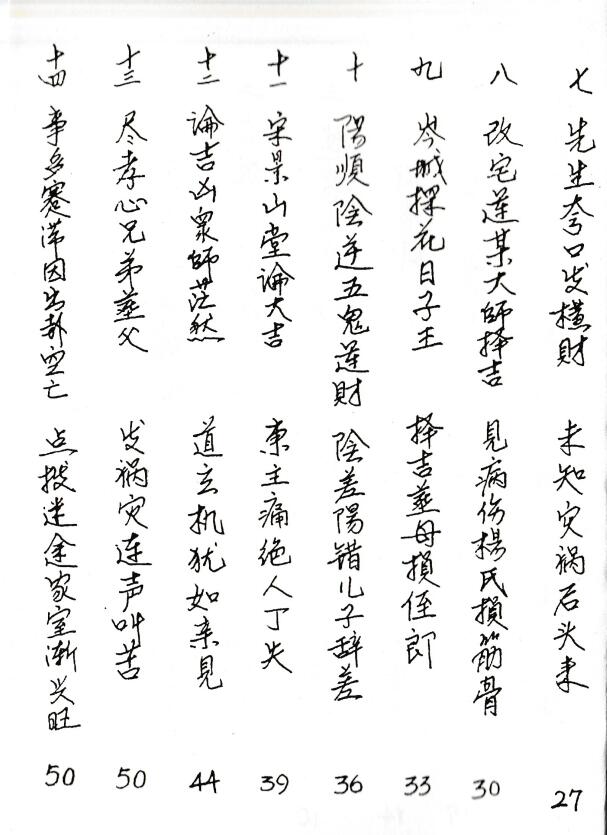 七 先生夸口发横财 未知灾祸后头来 27
八 改宅莲某大师择吉 见病伤杨氏損筋骨 30
九 岑城探花日子王 择吉塟母損侄郎 33
十 陽順陰逆五鬼運財 陰差陽错儿子辞差 36
十一 宋景山堂論大吉 東主痛绝人丁失 39
十二 論吉凶衆師茫然 道玄机犹如亲見 44
十三 尽孝心兄弟塟父 发祸灾连声叫苦 50
十四 事多蹇滞因出卦空亡 点拨迷途家室渐兴旺 50